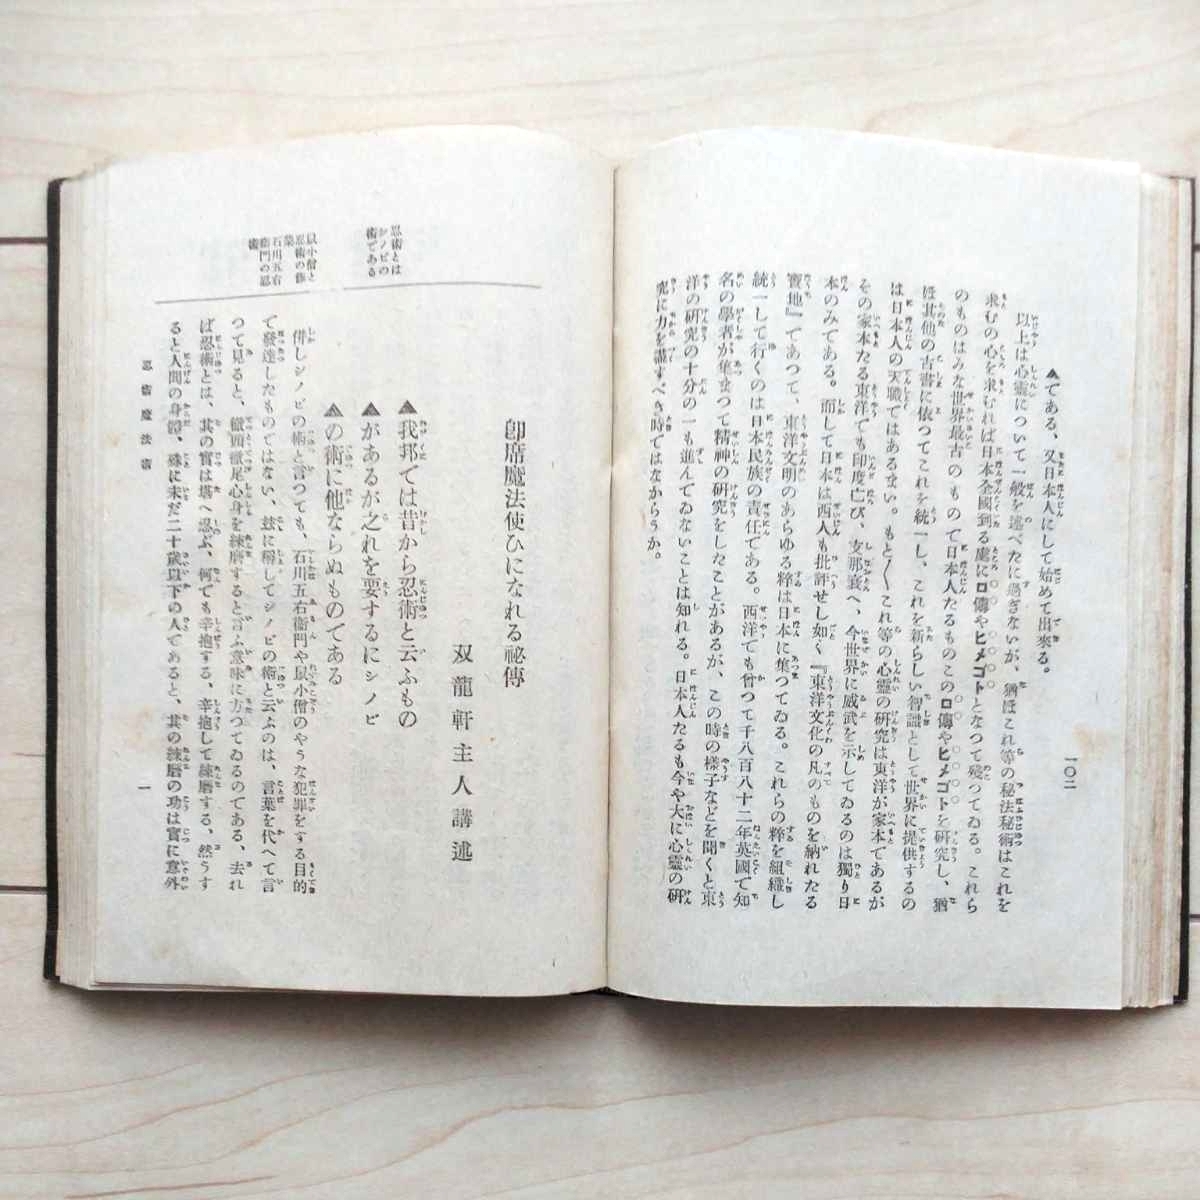 ▲である、又日本人にして始めて出來る。
以上は心靈について一般を述べたに過ぎないが、猶ほこれ等の秘法秘術はこれを
求むの心を求むれば日本全國到る處に口傳やヒメゴトとなつて殘つてゐる。これら
のものはみな世界最古のもので日本人たるものこの口傳やヒメゴトを研究し、猶
ほ其他の古書に依つてこれを統一し、これを新らしい智識として世界に提供するの
は日本人の天職ではあるまい。もと〳〵これ等の心靈の研究は東洋が家本であるが
その家本たる東洋でも印度亡び、支那衰へ、今世界に威武を示してゐるのは獨り日
本のみである。而して日本は西人も批評せし如く『東洋文化の凡のものを納れたる
寶地』であつて、東洋文明のあらゆる粹は日本に集つてゐる。これらの粹を組織し
統一して行くのは日本民族の責任である。西洋でも曾つて千八百八十二年英國で知
名の學者が集まつて精神の研究をしたことがあるが、この時の樣子などを聞くと東
洋の研究の十分の一も進んでゐないことは知れる。日本人たるも今や大に心靈の研
究に力を盡すべき時ではなからうか。
一〇二
卽席魔法使ひになれる祕傳
双龍軒主人講述
▲我邦では昔から忍術と云ふもの
▲があるが之れを要するにシノビ
▲の術に他ならぬものである
忍術とは
シノビの
術である
併しシノビの術と言つても、石川五右衞門や鼠小僧のやうな犯罪をする目的
で發達したものではない、玆に稱してシノビの術と云ふのは、言葉を代へて言
つて見ると、徹頭徹尾心身を練磨すると言ふ意味に方つてゐるのである、去れ
ば忍術とは、其の實は堪へ忍ぶ、何でも辛抱する、辛抱して練磨する、然うす
ると人間の身體、殊に未だ二十歲以下の人であると、其の練磨の功は實に意外
鼠小僧と
忍術の修
業
石川五右
衞門の忍
術
忍術魔法術
一